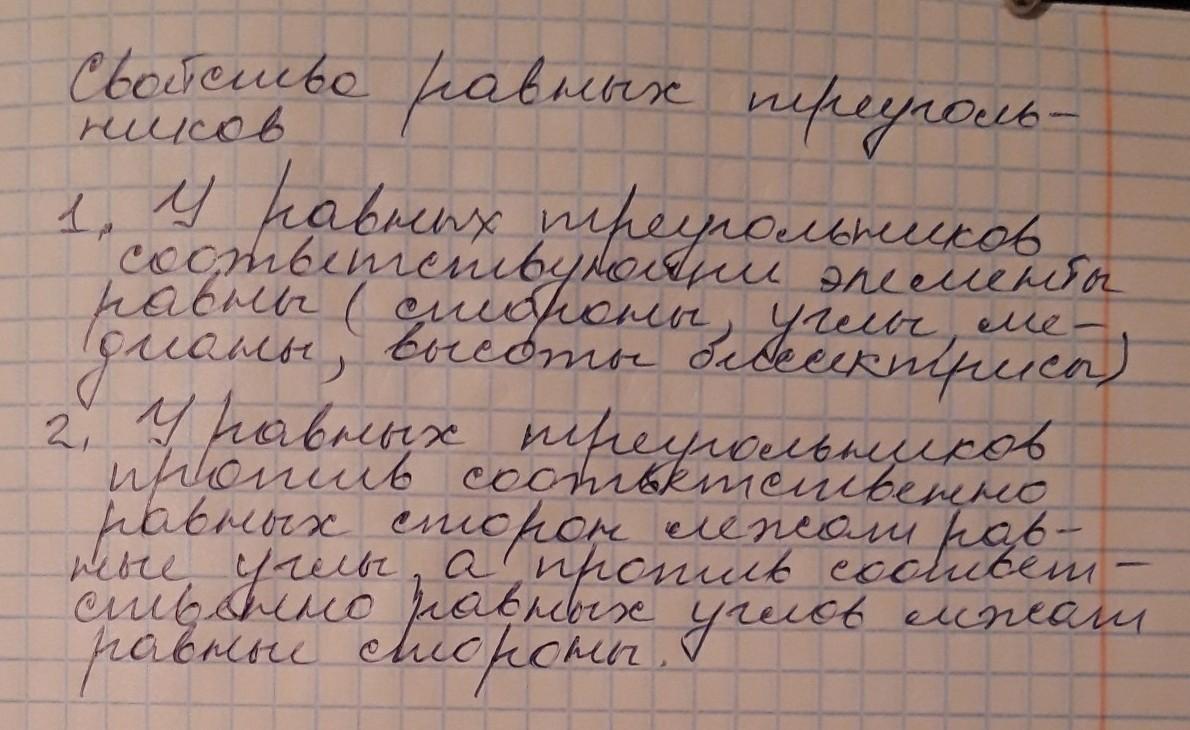 Свойства равных треуголь-
ников
1. У равных треугольников
соответствующии элементы
равны (стороны, углы, ме-
дианы, высоты биссектрисы)
2. У равных треугольников
против соответственно
равных сторон лежат рав-
ные углы, а против соответ-
ственно равных углов лежат
равные стороны.